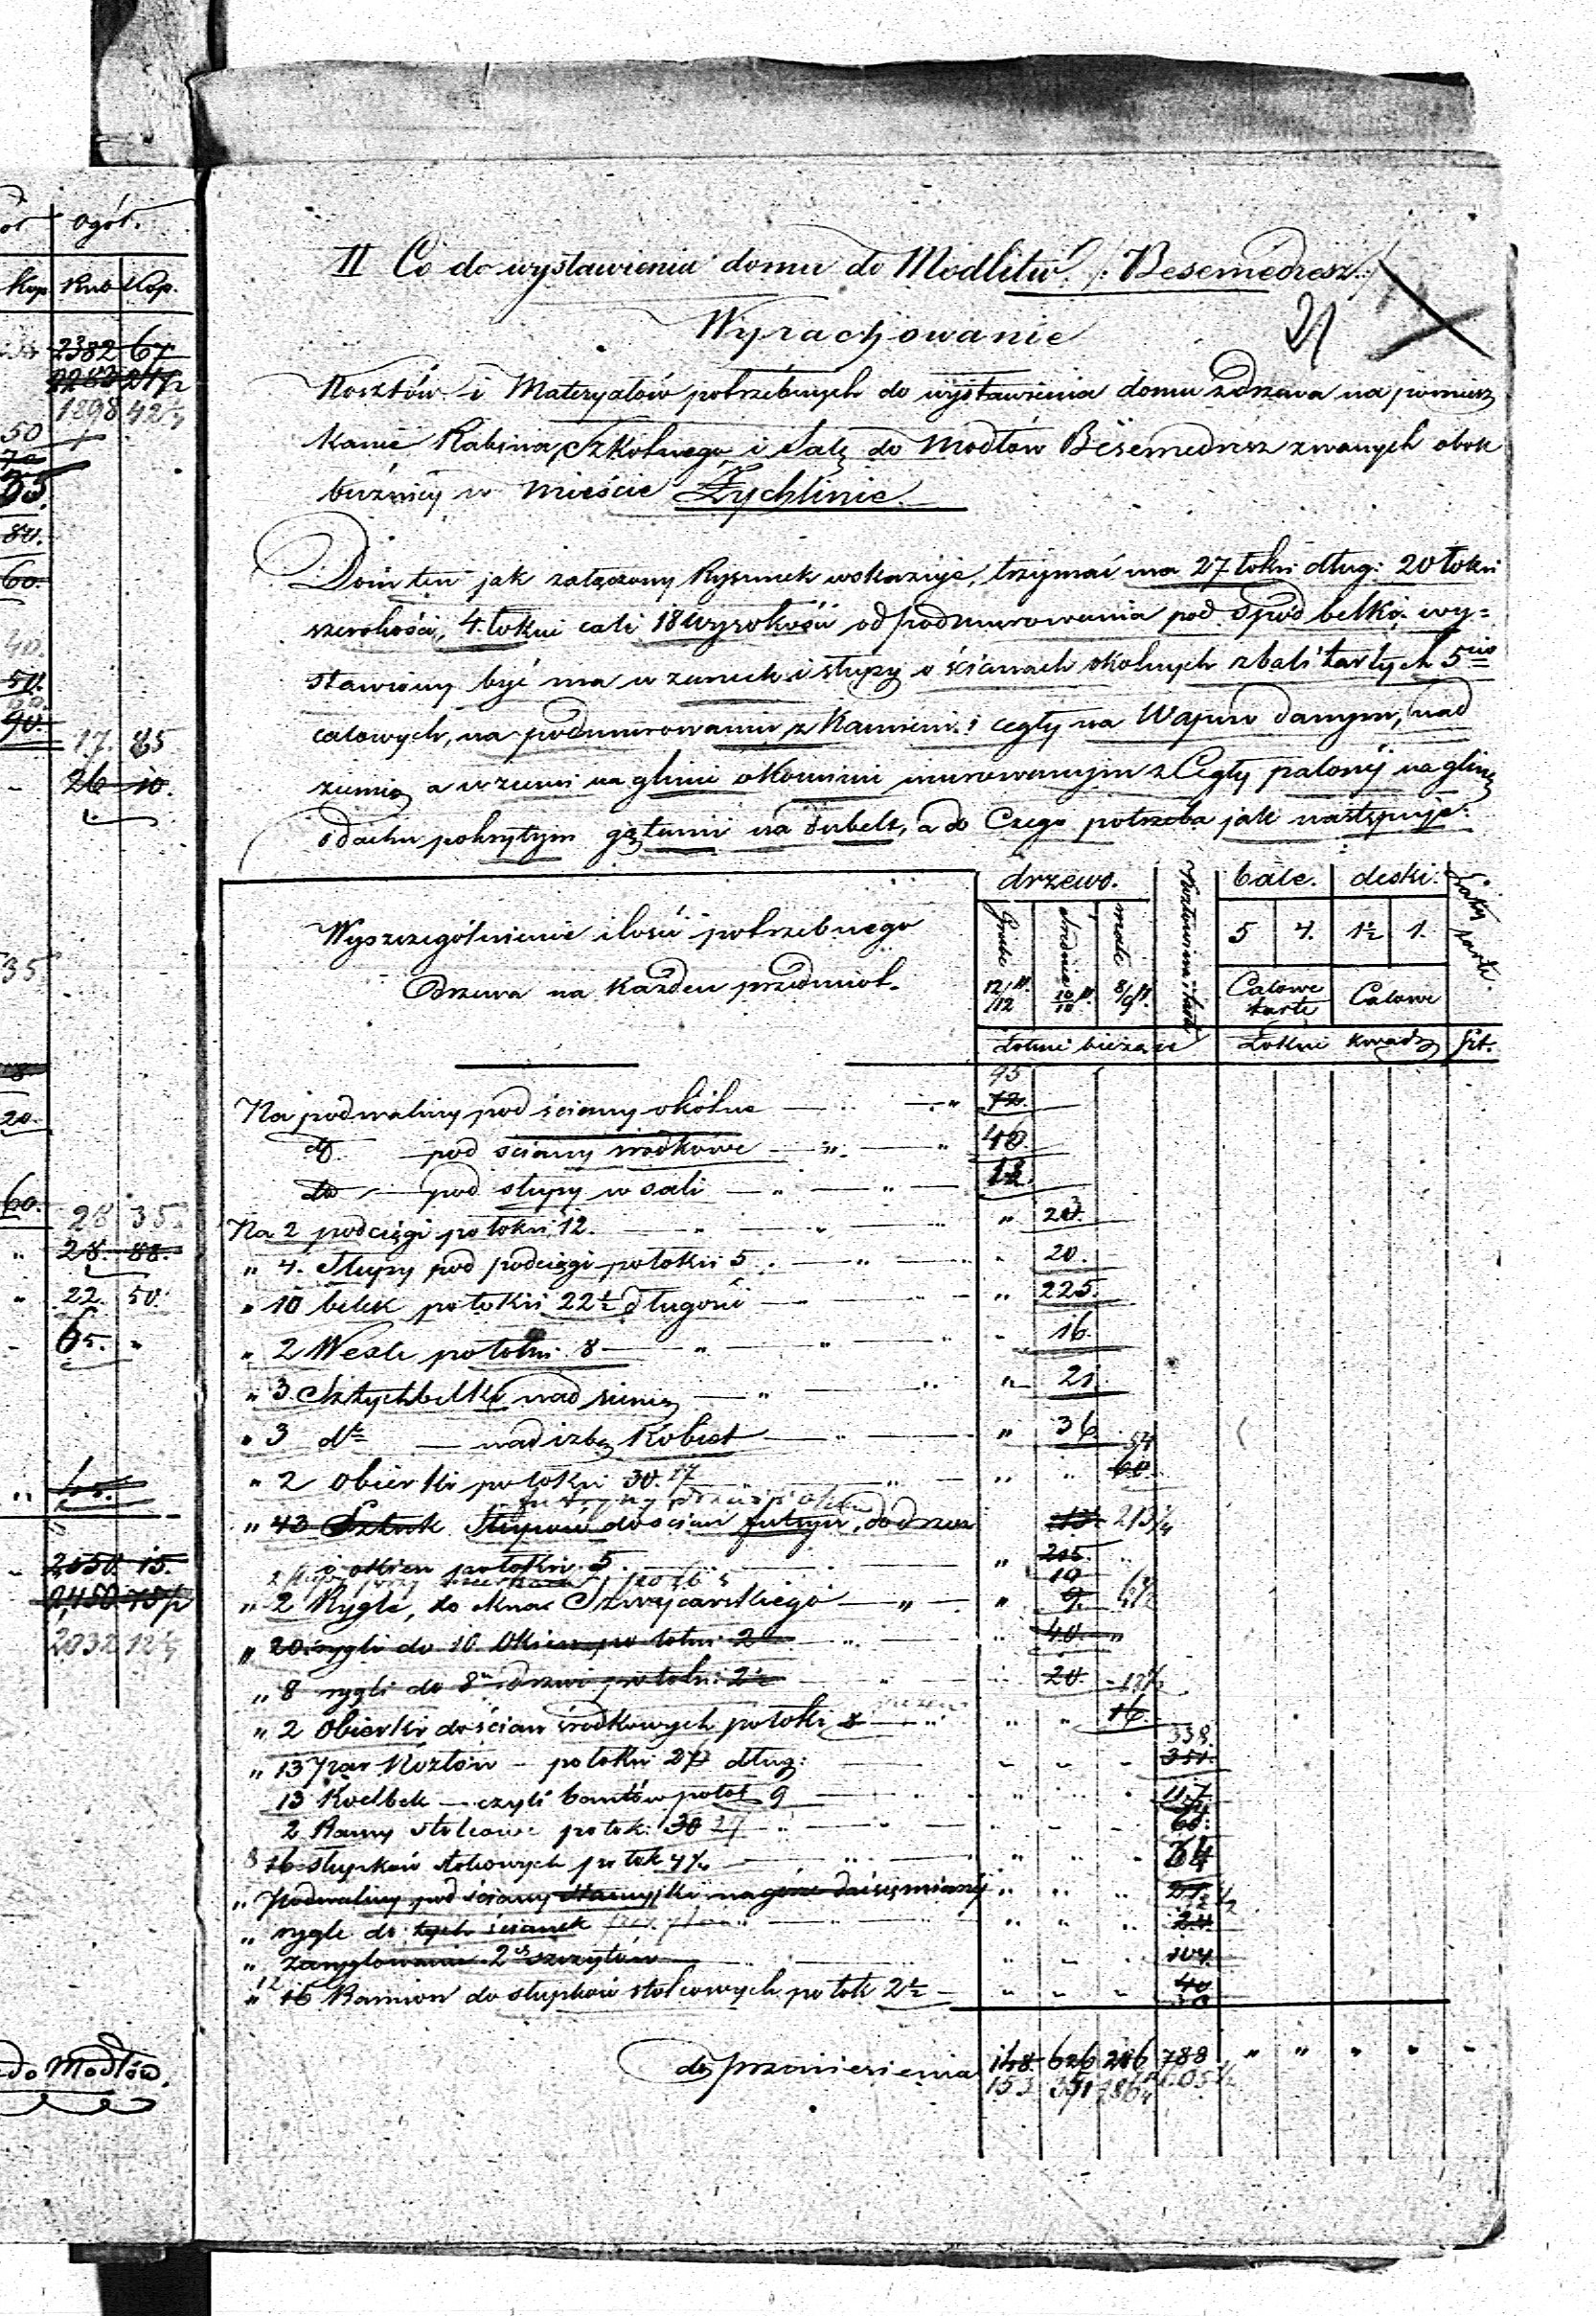 ogół.
Kop. Rub Kop.
2382 67
1898 42½
50
35.
80.
60.
40.
50.
90.
17. 85
26 10.
35
20.
60.
28 35
28. 88.
22. 50.
65. "
2550. 15.
2032 12½
do Modłów.
II Co do wystawienia domu do Modlitw /: Besemedresz :/
21
Wyrachowanie
Kosztów i Materyałów potrzebnych do wystawienia domu z drzewa na pomiesz
kanie Rabina, Szkolnego i Salę do Modłów Besemedresz zwanych obok
bużnicy w Mieście Żychlinie.
Dom ten jak załączony Rysunek wskazuje, trzymać ma 27 łokci dług: 20 łokci
szerokości, 4. łokcie cali 18 wysokości od podmurowania pod spód belki. wy=
stawiony być ma w zamek i słupy o ścianach okolnych z bali tartych 5cio
calowych, na podmurowaniu z Kamieni i cegły na Wapno danym, nad
ziemią a w ziemi na glinie o Kominie murowanym z Cegły palonej na glinę
o dachu pokrytym gątami na dubelt, a do Czego potrzeba jak następuje:
Wyszczególnienie ilości potrzebnego
Drzewa na każden przedmiot.
drzewo. bale. deski. Łaty tarte.
Grube średnie małe
5 4. 1½ 1.
12/12 10/10 8/9
Calowe tarte Calowe
Łokcie bieżące Łokcie kwadr Szt.
95
Na podwaliny pod ściany okólne 72.
dto pod sciany srodkowe 40.
dto pod słupy w sali 18
Na 2 podciągi po łokci 12.
" 4. Słupy pod podciągi po łokci 5. 20.
" 10 belek po łokci 22½ długości 225.
" 2 Wexle po łokci 8 16.
" 3 Sztychbelki nad sienią 21.
" 3 dto nad izbą Kobiet 36.
54
" 2 obierki po łokci 30. 27 60.
" 43 Sztuk Słupów do scian futryn, do drzwi 213¼
i okien po łokci 5. 215.
" 2 Rygle, do okna Szwajcarskiego 9.
" 20 rygli do 10 Okien po łokci 2 40.
" 8 rygli do 8 drzwi po łokci 2½ 20.
" 2 Obierki do ścian środkowych po łokci 8 16.
338.
" 13 par Kozłów po łokci 27 dług: 351.
13 Koelbek czyli bantów po łok 9 117
2 Ramy stolcowe po łok: 30 27 60.
8 16 słupków stolcowych po łok 4½ 64
" Podwaliny pod ściany
" rygle do tych ścianek 24.
" Zaryglowanie 2ch szczytów 104.
12
" 16 Ramion do słupków stolcowych po łok 2½ 40
30
do przeniesienia 148. 626 286 788 " " " " "
153 351